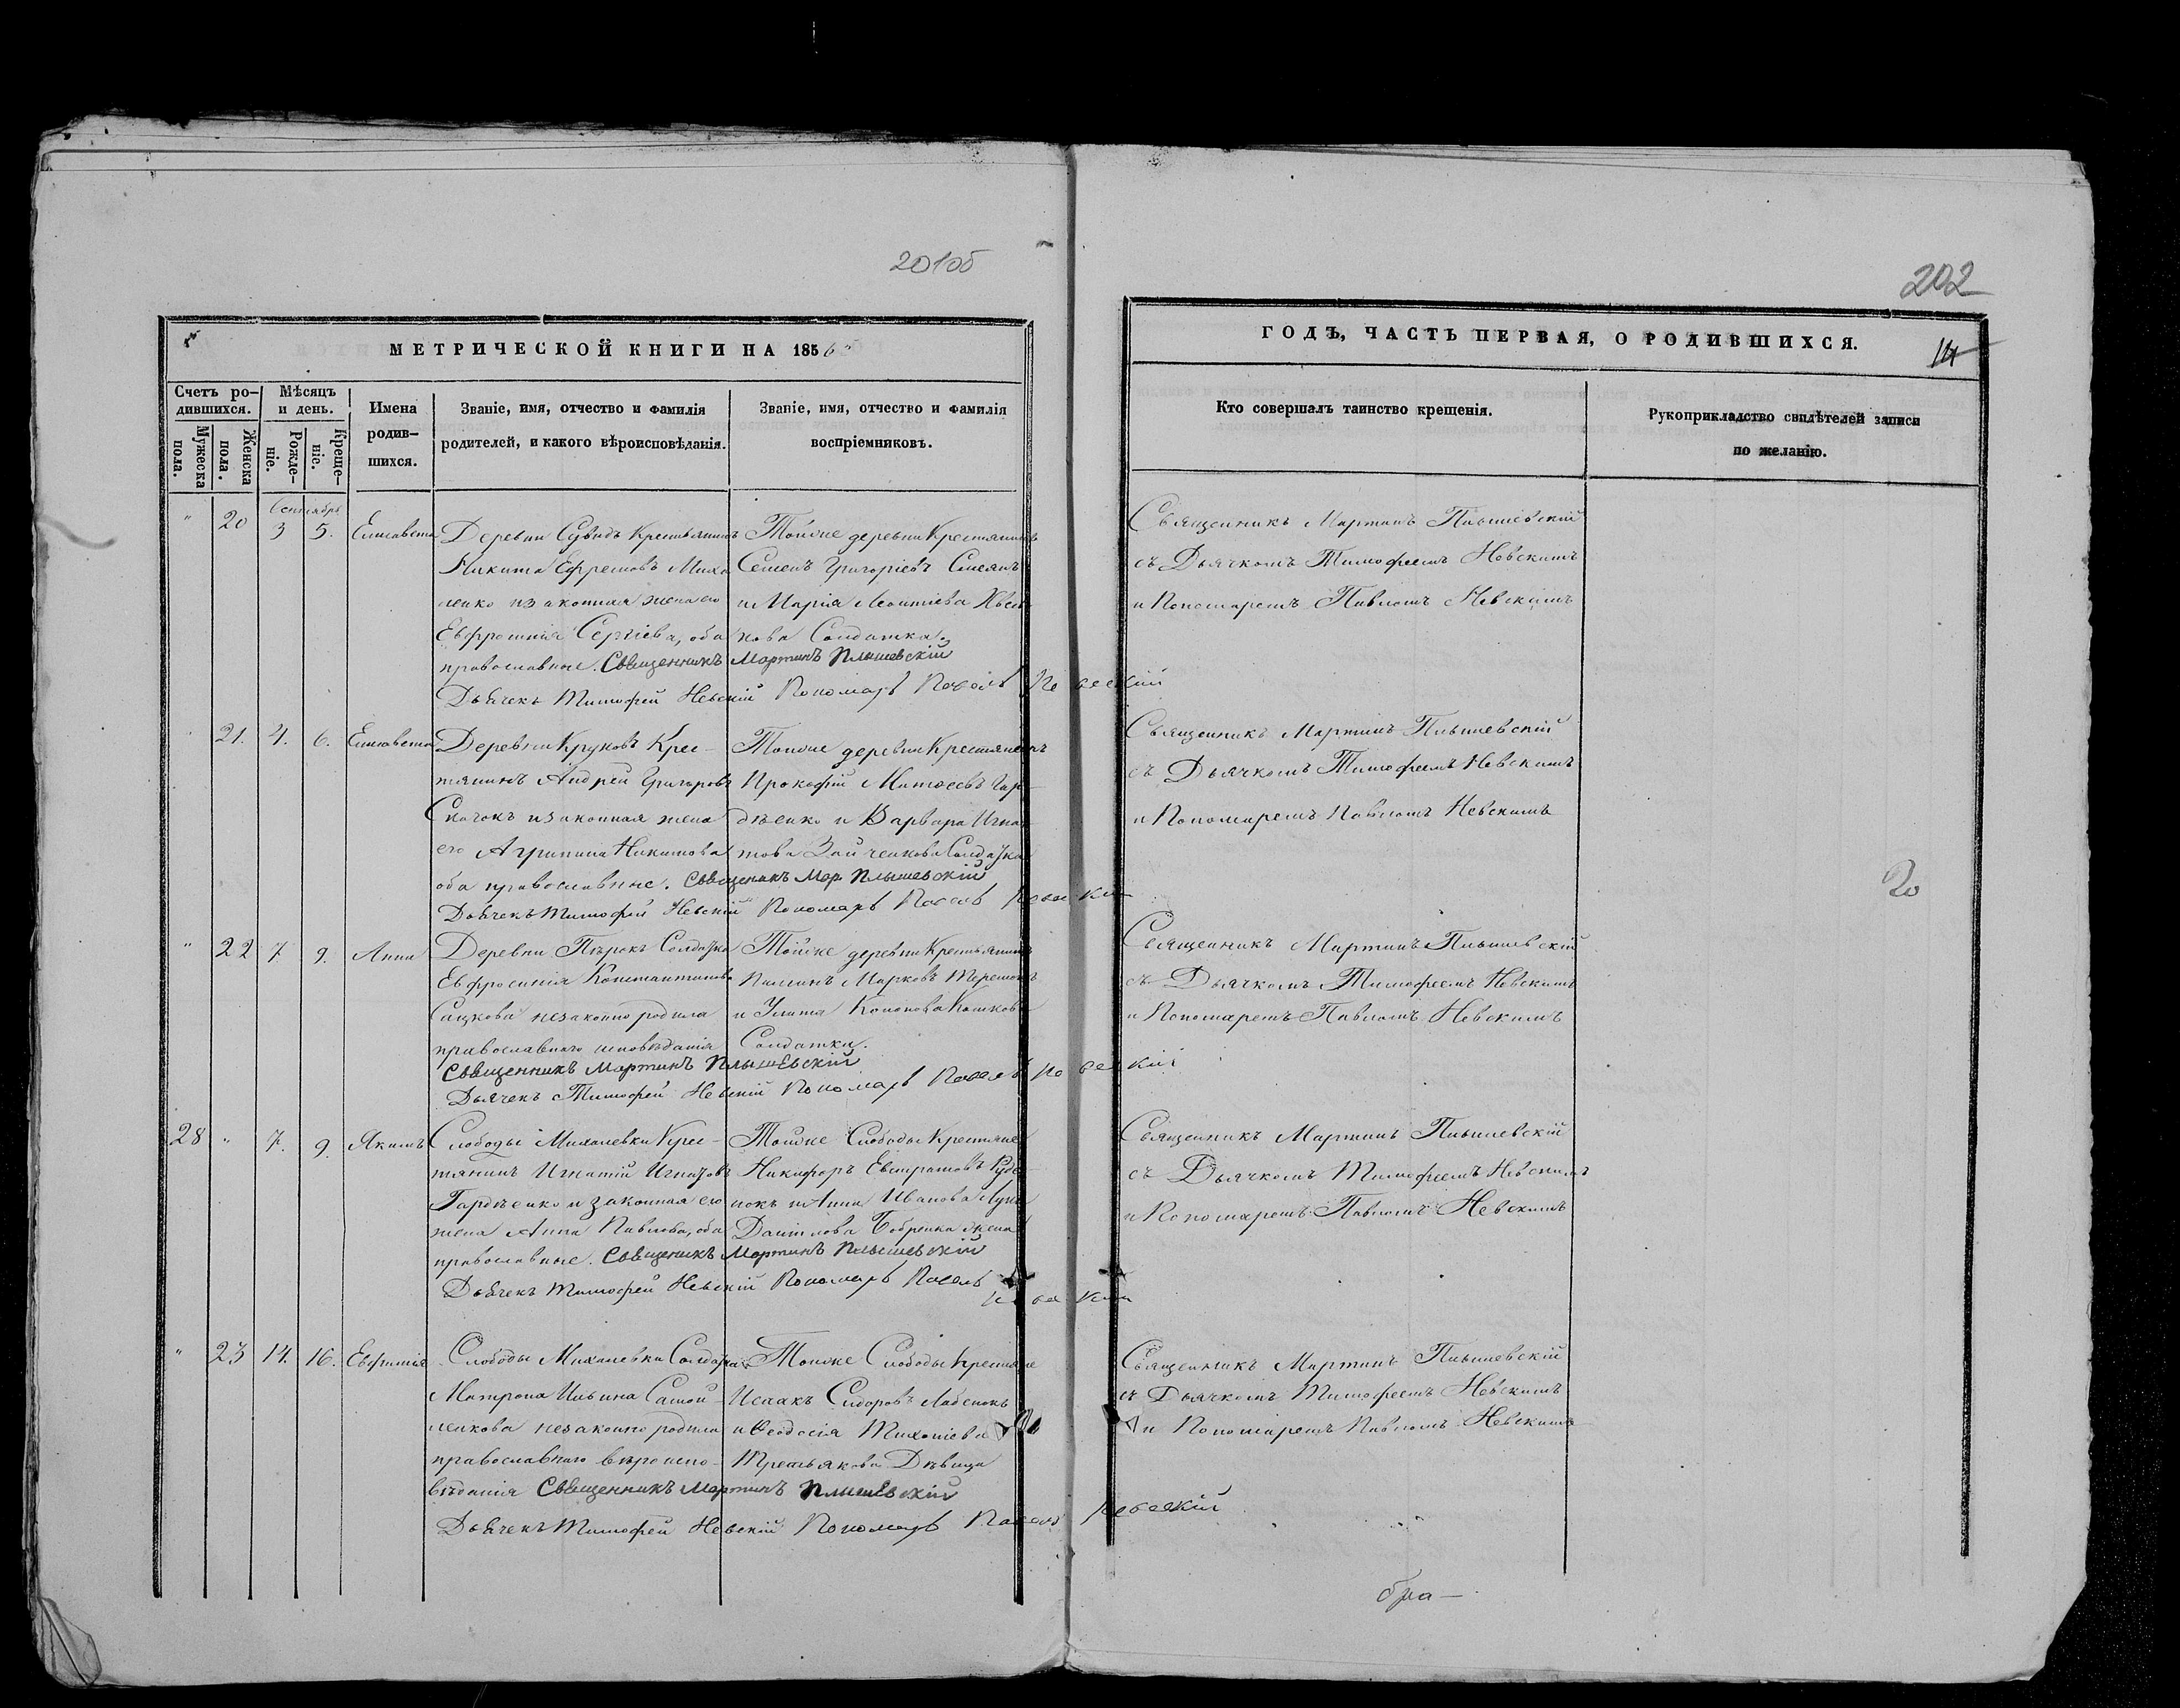 201об
202
МЕТРИЧЕСКОЙ КНИГИ НА 1856
ГОДЪ, ЧАСТЬ ПЕРВАЯ, О РОДИВШИХСЯ.
Счетъ ро-
дившихся.
Мужеска
пола.
Женска
пола.
Мѣсяцъ
и день.
Рожде-
ніе.
Креще-
ніе.
Имена
родив-
шихся.
Званіе, имя, отчество и фамилія
родителей, и какого вѣроисповѣданія.
Званіе, имя, отчество и фамилія
воспріемниковъ.
Кто совершалъ таинство крещенія.
Рукоприкладство свидѣтелей записи
по желанію.
Сентябрь
" 20 3 5. Елисавета
Деревни Сувидъ Крестьянинъ
Никита Ефремовъ Миха
ленко и законная жена его
Евфросинія Сергіева, оба
православные. Священникъ Мартинъ Плышевскій
Дьячекъ Тимофей Невскій Пономарь Павелъ Невскій
Тойже деревни Крестьянинъ
Семенъ Григоріевъ
и Марія Леонтіева
кова Солдатка.
Священникъ Мартинъ Плышевскій
съ Дьячкомъ Тимофеемъ Невскимъ
и Пономаремъ Павломъ Невскимъ
21. 4. 6. Елисавета
Деревни Круковъ Крес-
тянинъ Андрей Григоровъ
Скачокъ и законная жена
его Агрипина Никитова
оба православные. Священикъ Мар. Плышевскій
Дьячекъ Тимофей Невскій Пономарь Павелъ Невскій
Тойже деревни Крестьянинъ
Прокофій Матвеевъ Гор-
дѣенко и Варвара Игна-
това Зайченкова Солдатка
Священникъ Мартинъ Плышевскій
съ Дьячкомъ Тимофеемъ Невскимъ
и Пономаремъ Павломъ Невскимъ
20
" 22 7. 9. Анна
Деревни Солдатка
Евфросинія Константинова
Сацкова незаконно родила
православнаго исповѣданія
Священникъ Мартинъ Плышевскій
Дьячекъ Тимофей Невскій Пономарь Павелъ Невскій
Тойже деревни Крестьянинъ
Марковъ
и Улита Кононова
Солдатки.
Священникъ Мартинъ Плышевскій
съ Дьячкомъ Тимофеемъ Невскимъ
и Пономаремъ Павломъ Невскимъ
28 " 7. 9. Якимъ
Слободы Михалевки Крес-
тянинъ Игнатій Игнатовъ
Гордѣенко и законная его
жена Анна Павлова, оба
православные. Священикъ Мартинъ Плышевскій
Дьячекъ Тимофей Невскій Пономарь Павелъ
Невскій
Тойже Слободы Крестьяне
Никифоръ Евстратовъ
и Анна Иванова
Данилова жена
Священникъ Мартинъ Плышевскій
съ Дьячкомъ Тимофеемъ Невскимъ
и Пономаремъ Павломъ Невскимъ
" 23 14. 16. Евфимія
Слободы Михалевки Солдатка
Матрона Ильина Самой-
ленкова незаконно родила
православнаго вѣроиспо-
вѣданія Священникъ Мартинъ Плышевскій
Дьячекъ Тимофей Невскій Пономарь Павелъ Невскій
Тойже Слободы Крестьяне
Исаакъ Сидоровъ
и Феодосія
Третьякова Дѣвица
Священникъ Мартинъ Плышевскій
съ Дьячкомъ Тимофеемъ Невскимъ
и Пономаремъ Павломъ Невскимъ
бра-